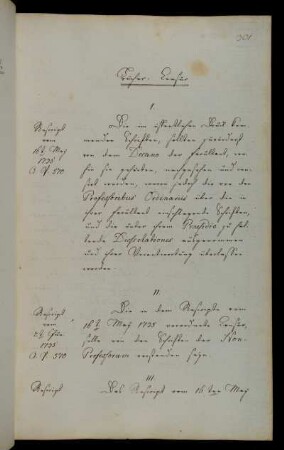 301
Bücher-Censur
I
Rescript
vom
16t May
1735
Die im öffentlichen Druck kom-
mender Schriften, sollten
von dem Decano der Facultät, wo-
hin sie gehören, nachgesehen und
werden, wenn jedoch die von den
Professoribus Ordinariis über die in
ihre Facultät einschlagende Schriften,
und die unter ihrem Praesidio zu hal-
tende Dissertationes ausgenommen
und ihrer Verantwortung überlassen
werden.
II
Rescript
vom
1735
Die in dem Rescripte vom
16t May 1735 verordnete Censur,
solle von den Schriften der
Professorum verstanden seyn.
III
Rescript
Das Rescript vom 16ten May